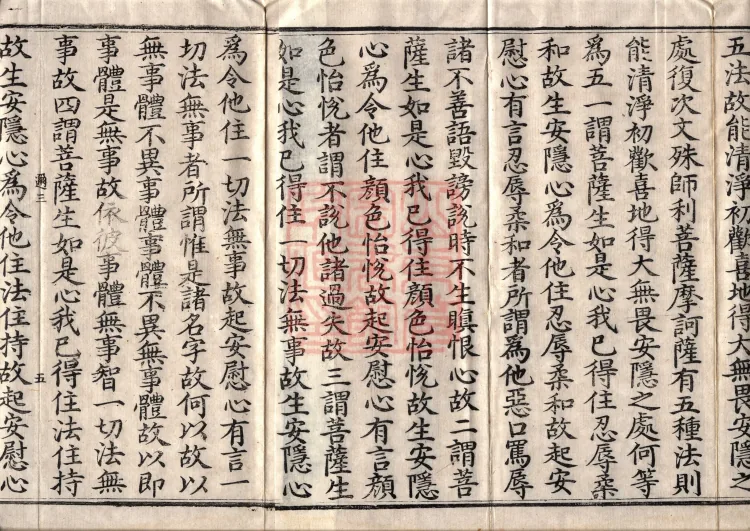 五法故能清淨初歡喜地得大無畏安隱之
處復次文殊師利菩薩摩訶薩有五種法則
能清淨初歡喜地得大無畏安隱之處何等
為五一謂菩薩生如是心我已得住忍辱柔
和故生安隱心為令他住忍辱柔和故起安
慰心有言忍辱柔和者所謂為他惡口罵辱
諸不善語毀謗說時不生瞋恨心故二謂菩
薩生如是心我已得住顏色怡悅故生安隱
心為令他住顏色怡悅故起安慰心有言顏
色怡悅者謂不說他諸過失故三謂菩薩生
如是心我已得住一切法無事故生安隱心
為令他住一切法無事故起安慰心有言一
切法無事者所謂惟是諸名字故何以故以
無事體不異事體事體不異無事體故以即
事體是無事故依彼事體無事智一切法無
事故四謂菩薩生如是心我已得住法住持
三
五
故生安隱心為令他住法住持故起安慰心